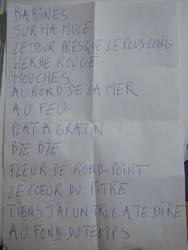 BABINES
SUR MA MULE
LE JOUR PRESQUE LE PLUS LONG
HERBE ROUGE
MOUCHES
AU BORD DE LA MER
AU FEU
PLAT A GRATIN
BYE BYE
FLEUR DE ROND-POINT
LE COEUR DU PITRE
TIENS J'AI UN TRUC A TE DIRE
AU FOND DU TEMPS